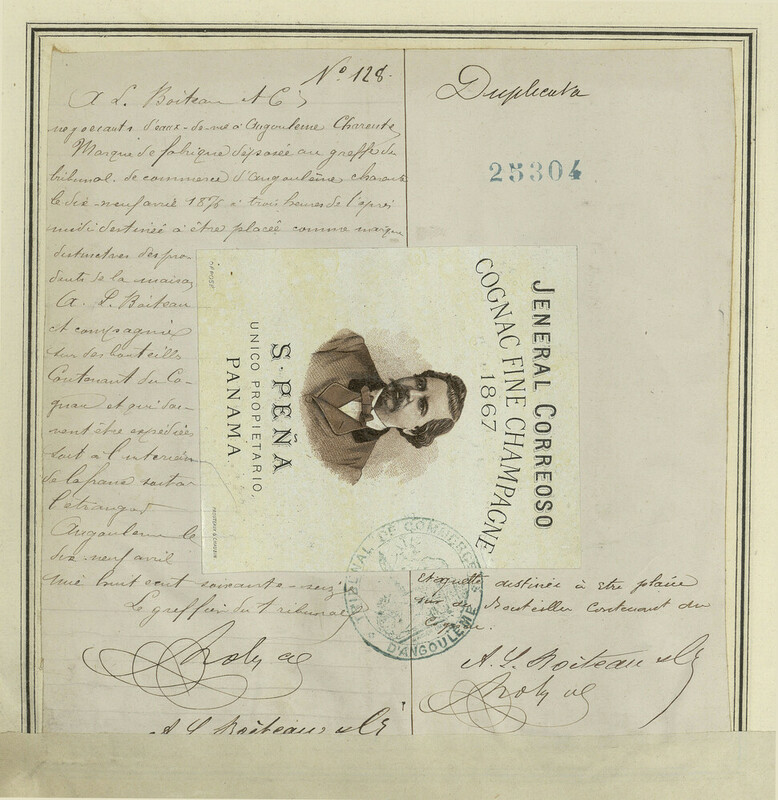 Nº 128.
A L. Boiteau & Cie
negociants d'eaux-de-vie à Angoulême Charente
Marque de fabrique déposée au greffe du
tribunal de commerce d'Angoulême charente
le dix-neuf avril 1876 à trois heures de l'après
midi destinée à être placée comme marque
distinctive des pro
duits de la maison
A. L. Boiteau
et compagnie
sur des bouteilles
Contenant du Co-
gnac et qui doi-
vent être expédiées
soit à l'interieur
de la france soit a
l'etranger
Angoulême le
dix-neuf avril
mil huit cent soixante-seize
Le greffier du Tribunal
A L Boiteau & Cie
Duplicata
25304
JENERAL CORREOSO
COGNAC FINE CHAMPAGNE
1867
S. PEÑA
UNICO PROPIETARIO.
PANAMA
TRIBUNAL DE COMMERCE
D'ANGOULÊME
Etiquette destinée à être placée
sur des Bouteilles contenant du
Cognac.
A. L. Boiteau & Cie